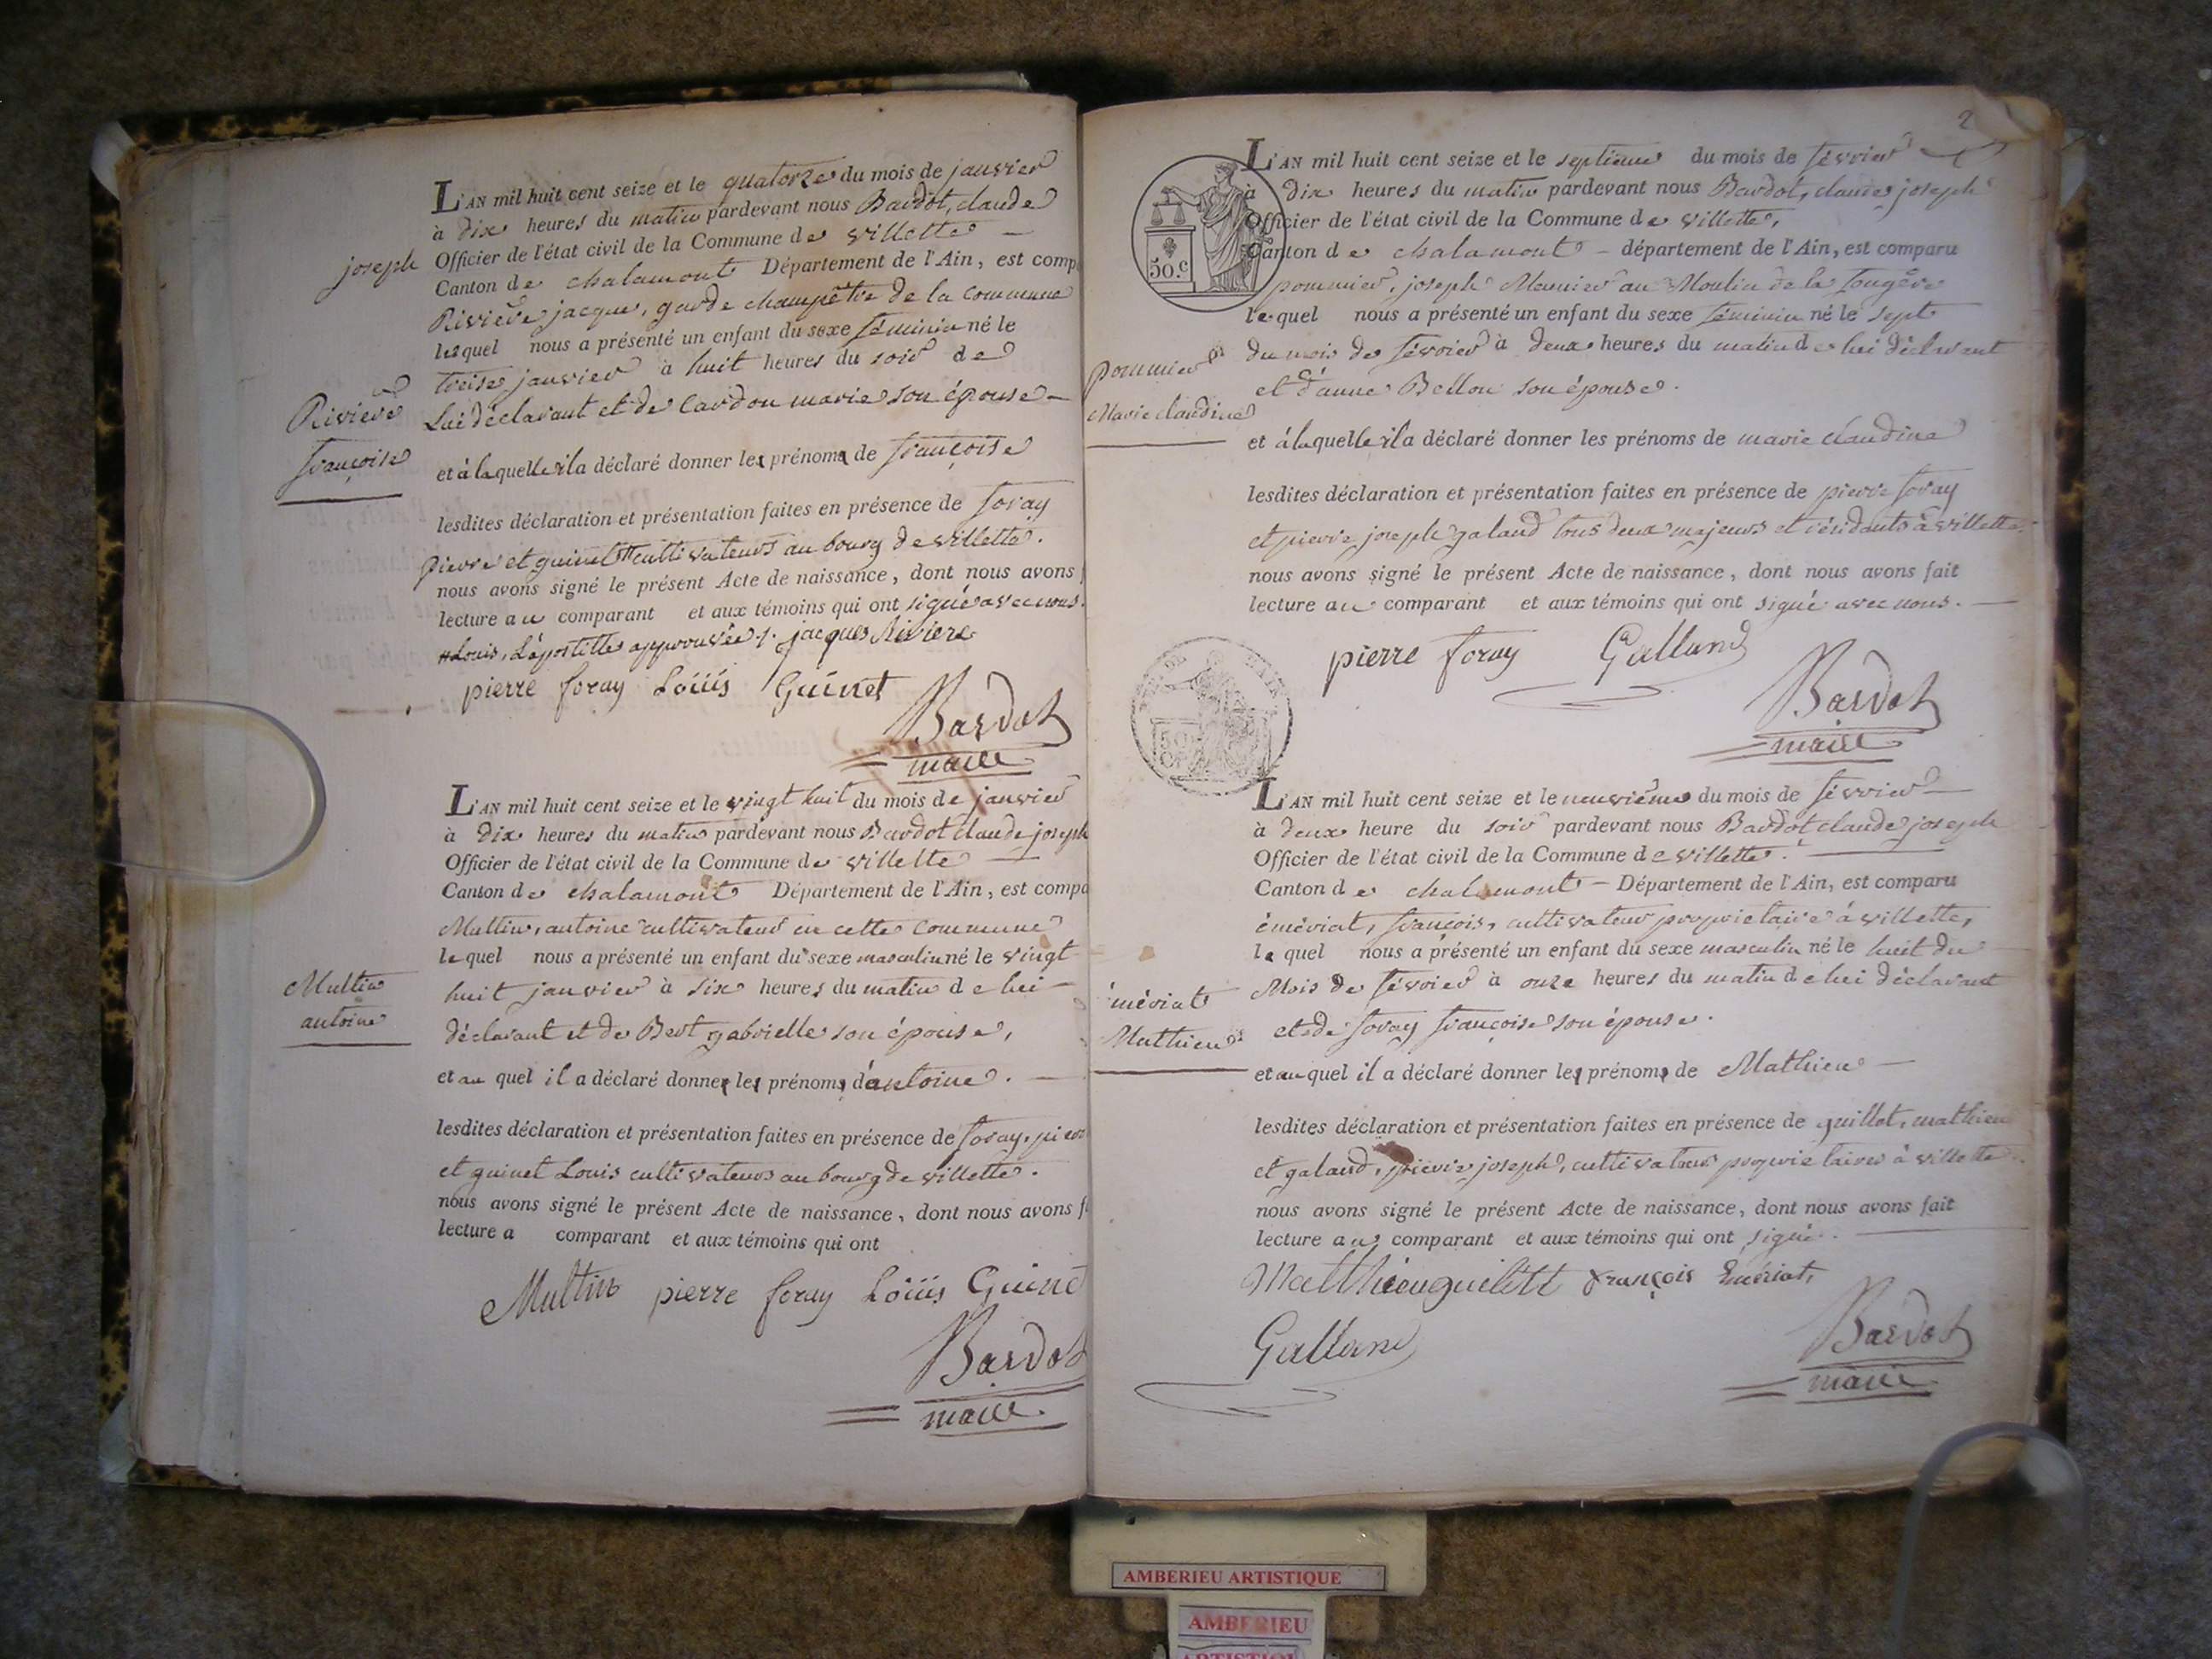 L'AN mil huit cent seize et le quatorze du mois de janvier
à dix heures du matin pardevant nous Bardot, claude
joseph Officier de l'état civil de la Commune de villette
Canton de chalamont Département de l'Ain, est comp
Rivière jacque, garde champêtre de la commune
lequel nous a présenté un enfant du sexe féminin né le
treise janvier à huit heures du soir de
Lui déclarant et de Cardon marie son épouse
Riviere
françoise
et à laquelle il a déclaré donner les prénoms de françoise
lesdites déclaration et présentation faites en présence de foray
pierre et guinet # cultivateurs au bourg de villette.
nous avons signé le présent Acte de naissance, dont nous avons f
lecture au comparant et aux témoins qui ont signé avec nous.
# Louis, L'apostille approuvée ./. jacques Riviere
pierre foray Loüis Guinet
Bardot
maire
L'AN mil huit cent seize et le vingt huit du mois de janvier
à dix heures du matin pardevant nous Bardot claude joseph
Officier de l'état civil de la Commune de villette
Canton de chalamont Département de l'Ain, est compa
Multin, antoine cultivateur en cette commune
lequel nous a présenté un enfant du sexe masculin né le vingt
huit janvier à six heures du matin de lui
Multin
antoine
déclarant et de Bert gabrielle son épouse,
et au quel il a déclaré donner les prénoms d'antoine.
lesdites déclaration et présentation faites en présence de foray, pierr
et guinet Louis cultivateurs au bourg de villette.
nous avons signé le présent Acte de naissance, dont nous avons f
lecture a comparant et aux témoins qui ont
Multin pierre foray Loüis Guinet
Bardot
maire
2
L'AN mil huit cent seize et le septieme du mois de février
à dix heures du matin pardevant nous Bardot, claude joseph
Officier de l'état civil de la Commune de villette,
Canton de chalamont département de l'Ain, est comparu
50.c
pommier, joseph Meunier au Moulin de la fougère
lequel nous a présenté un enfant du sexe féminin né le sept
du mois de février à deux heures du matin de lui déclarant
pommier
Marie claudine
et d'anne Bellon son épouse.
et à laquelle il a déclaré donner les prénoms de marie claudine
lesdites déclaration et présentation faites en présence de pierre foray
et pierre joseph galand tous deux majeurs et résidants à villette.
nous avons signé le présent Acte de naissance, dont nous avons fait
lecture au comparant et aux témoins qui ont signé avec nous.
pierre foray Galland
Bardot
maire
L'AN mil huit cent seize et le neuvième du mois de février
à deux heure du soir pardevant nous Bardot claude joseph
Officier de l'état civil de la Commune de villette.
Canton de chalamont Département de l'Ain, est comparu
émériat, françois, cultivateur proprietaire à villette,
lequel nous a présenté un enfant du sexe masculin né le huit du
Mois de février à onze heures du matin de lui déclarant
émériat
Mathieu
et de foray françoise son épouse.
et au quel il a déclaré donner les prénoms de Mathieu
lesdites déclaration et présentation faites en présence de guillot, mathieu
et galand, pierre joseph, cultivateurs proprietaires à villette.
nous avons signé le présent Acte de naissance, dont nous avons fait
lecture au comparant et aux témoins qui ont signé.
françois Emériat,
Galland
Bardot
maire
AMBERIEU ARTISTIQUE
AMBERIEU
ARTISTIQUE